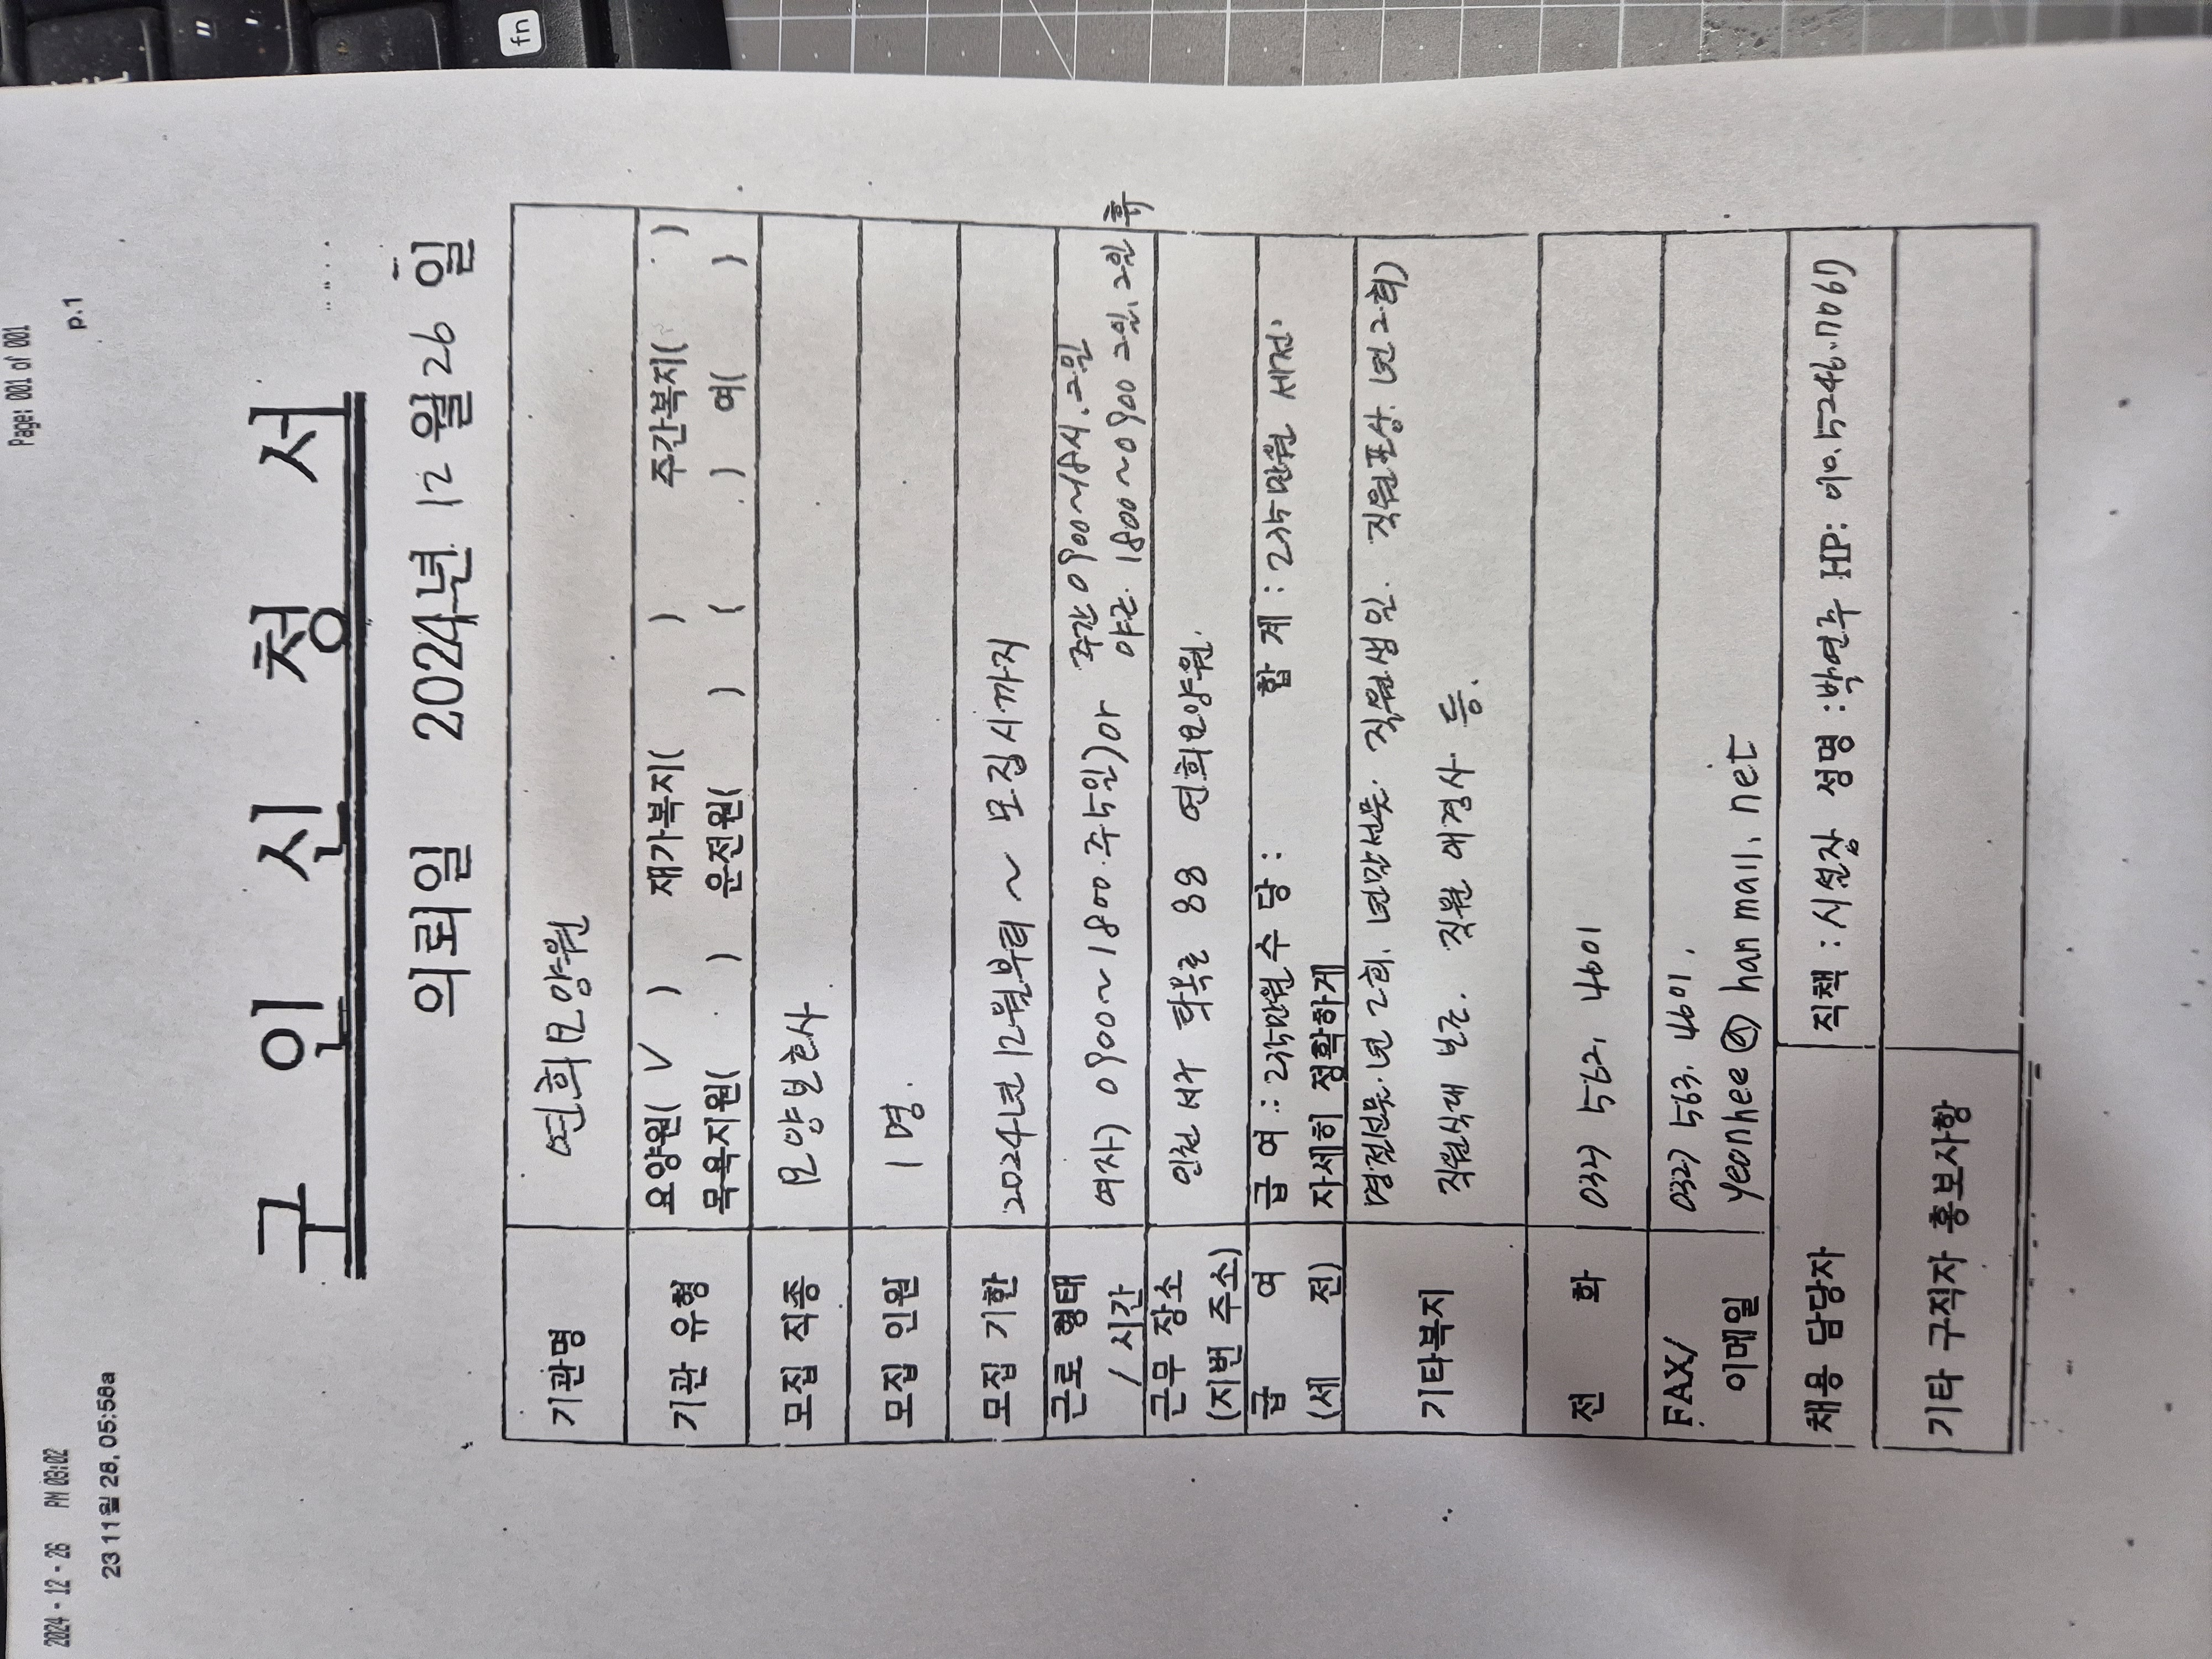 2024-12-26 PM 03:02 Page: 001 of 001
23 11월 28. 05:58a p.1
구 인 신 청 서
의뢰일 2024년 12월 26일
기관명 연희요양원
기관 유형 요양원( V ) 재가복지( ) 주간복지( )
목욕지원( ) 운전원( ) ( ) 여( )
모집 직종 요양보호사
모집 인원 1명.
모집 기한 2024년 12월부터 ~ 모집시까지
근로 형태 / 시간 여자) 0900~1800.주5일)or 주간 0900~18시.2일
야근. 1800~0900 2일, 2일 휴
근무 장소 (지번 주소) 인천 서구 탁옥로 88 연희요양원.
급 여 (세 전) 급 여 : 235만원 수 당 : 합 계 : 235만원 세전.
자세히 정확하게
기타복지 명절선물.년 2회. 년말선물. 직원생일. 직원포상. 년 2회)
직원식대 보조. 직원 애경사 등.
전 화 032) 562. 4601
FAX/ 032) 563. 4601.
이메일 yeonhee @ hanmail.net
채용 담당자 직책 : 시설장 성명 : 박연주 HP: 010.5246.7067)
기타 구직자 홍보사항
fn